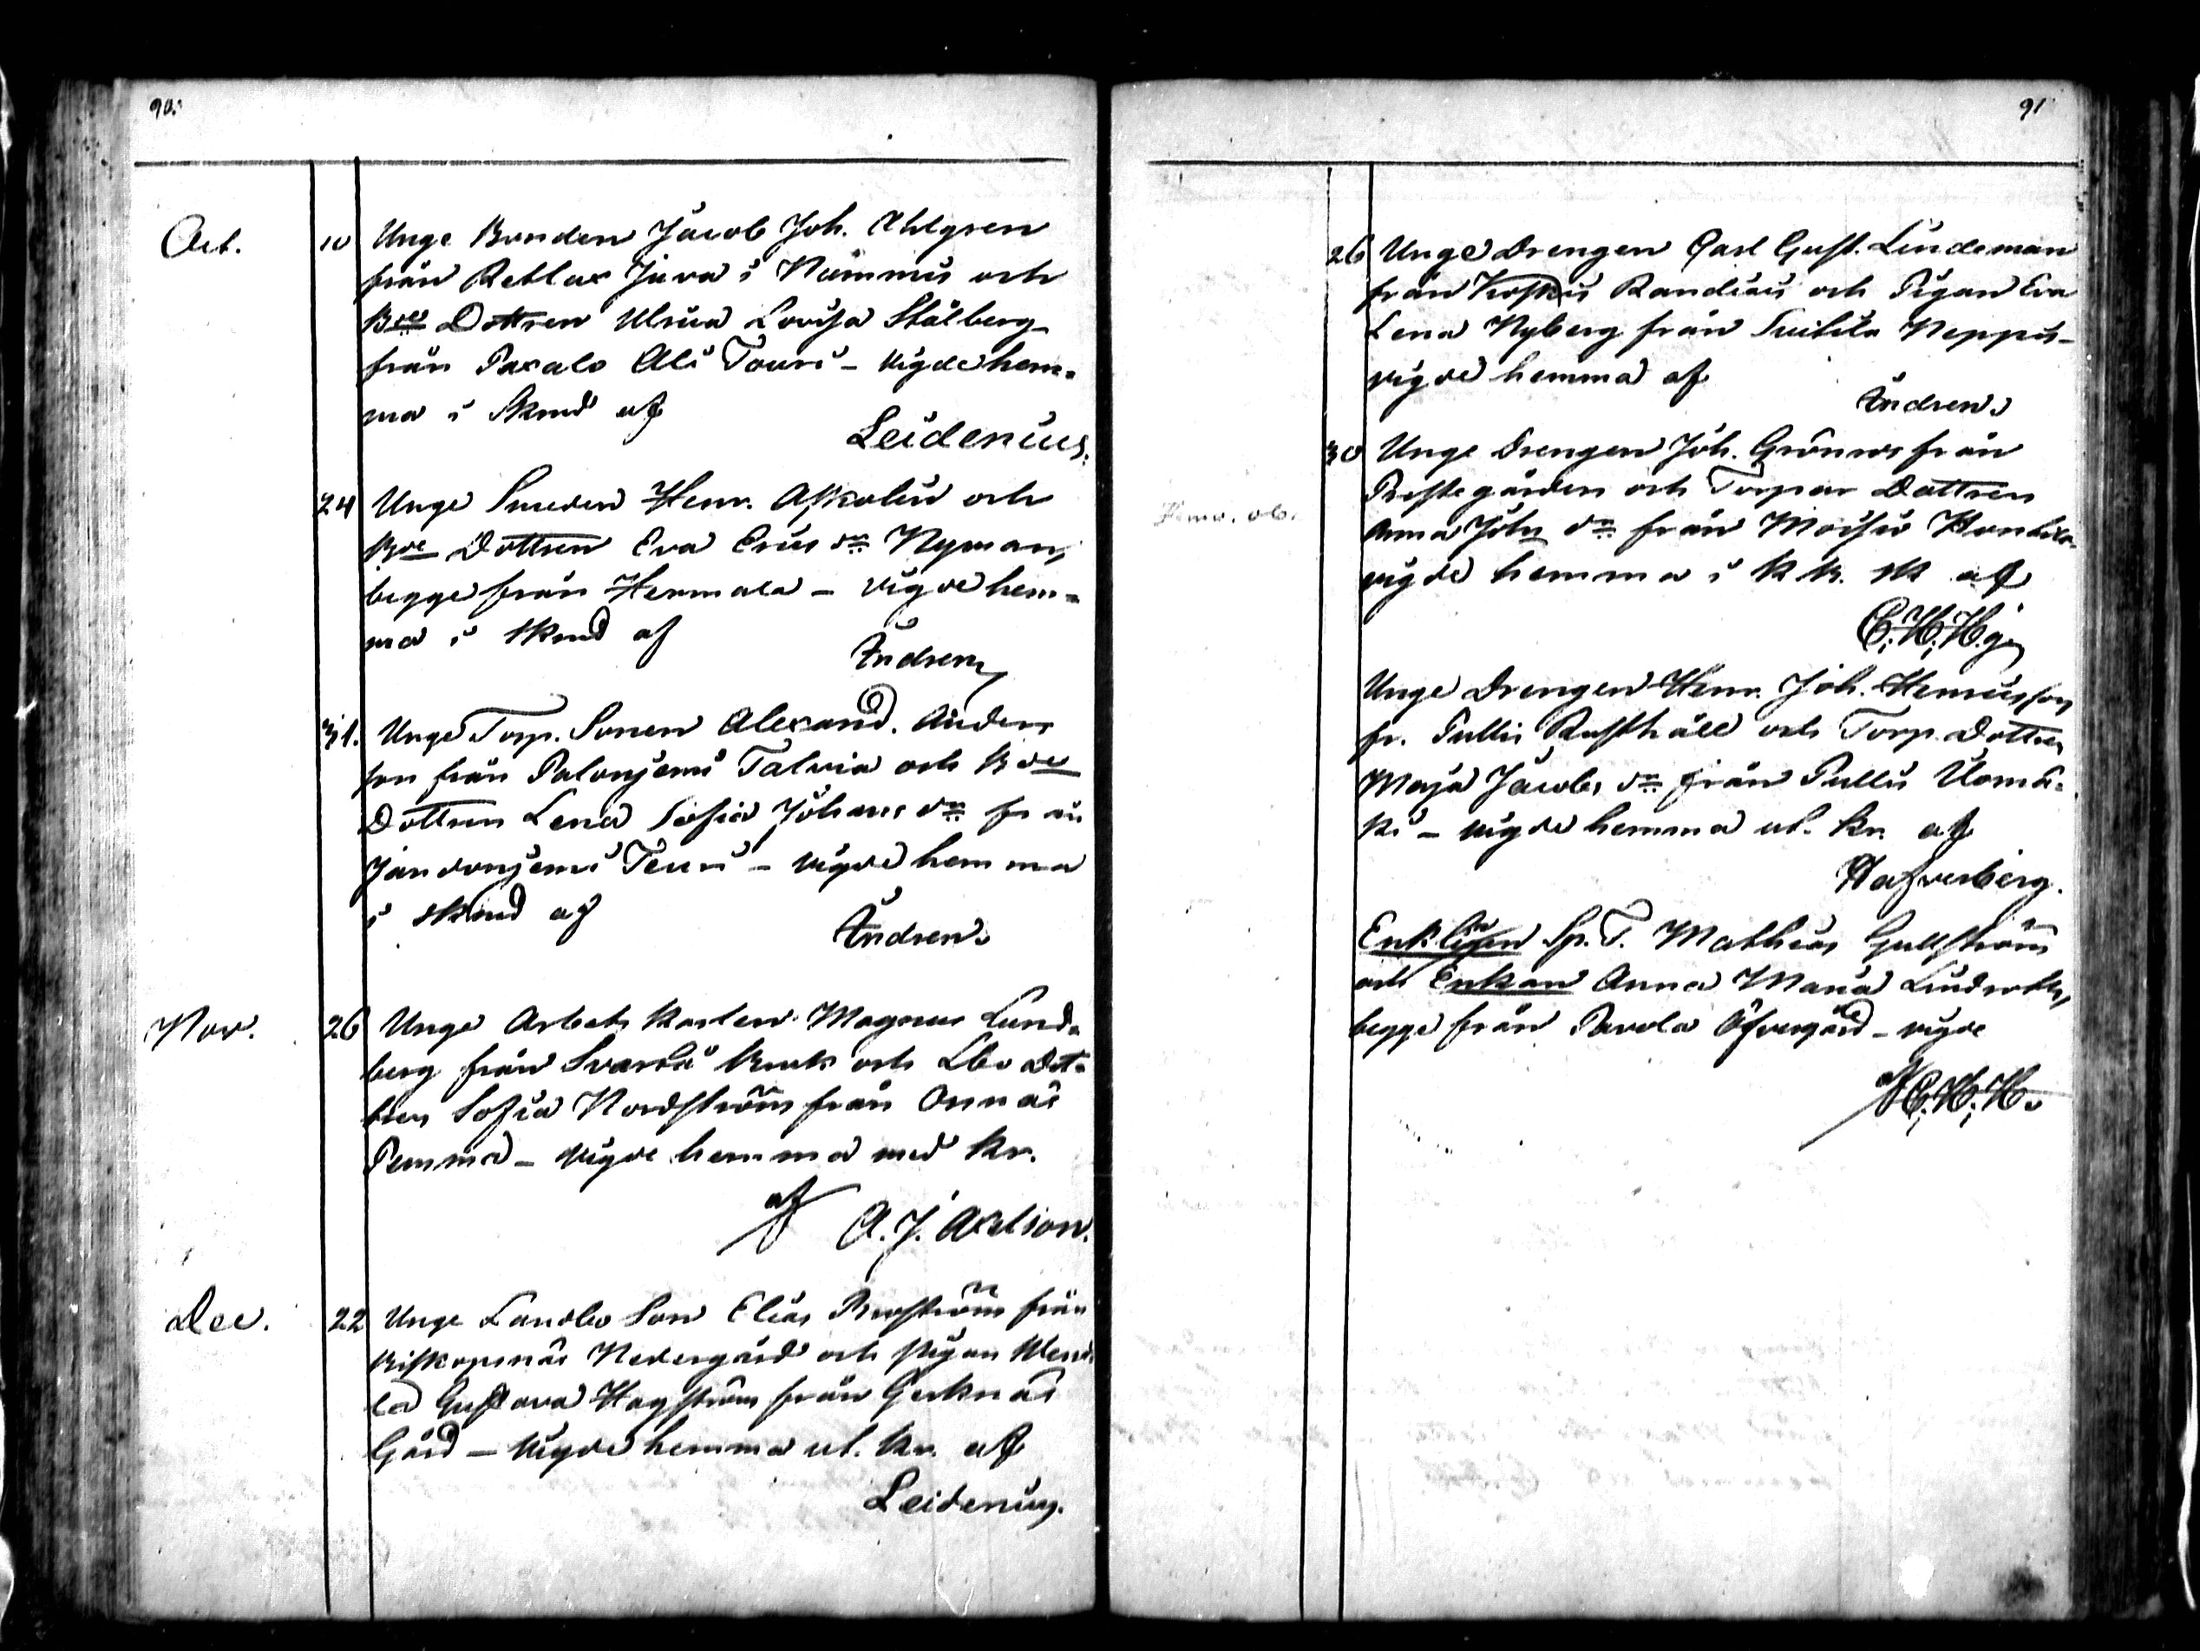 90.
Oct. 10 Unge Bonden Jacob Joh. Ahlgren
från Retlax Juva i Nummis och
Bde Dottren Ulrica Lovisa Stålberg
från Paxalo Ali Touri - vigde hem-
ma i Skmd af
Leidenius.
24 Unge Smeden Henr. Askolin och
Bde Dottren Eva Erics dr Nyman,
begge från Hermala - vigde hem-
ma i skmd af
Andren
31. Unge Torp. Sonen Alexand. Anders
son från Palonjemi Talvia och Bde
Dottren Lena Sofia Johans dr från
Jandonjemi Teuri - vigde hemma
i skmd af
Andren.
Nov. 26 Unge Arbets Karlen Magnus Lund-
berg från Svartå Bruk och Lbo Dot-
tren Sofia Nordström från Onnäs
Pumma - vigde hemma med Kr.
af A. J. Axelson.
Dec. 22 Unge Landbo Son Elias Broström från
Biskopsnäs Nedergård och pigan Wend-
la Gustava Hagström från Gerknäs
Gård - vigde hemma ut. Kr. af
Leidenius.
91
26 Unge Drengen Carl Gust. Lindeman
från Koskis Randiais och Pigan Eva
Lena Nyberg från Suitila Neppis -
vigde hemma af
Andren.
30 Unge Drengen Joh. Grönroos från
Prestegården och Torpar Dottren
Anna Johs dr från Moisio Honkila
vigde hemma i K. K. sk af
C. H. Hg
Unge Drengen Henr. Joh. Henricsson
fr. Pullis Rusthåll och Torp. Dottren
Maja Jacobs dr från Pullis Uomä-
ki - vigde hemma ut. Kr. af
Hafverberg.
Enklingen Sp. T. Mathias Gullström
och Enkan Anna Maria Lindroth,
begge från Pavola Öfvergård - vigde
af C. H. H.